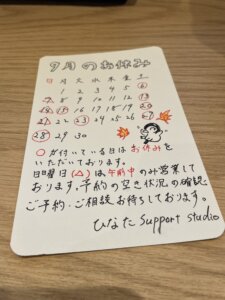 9月のお休み
日 月 火 水 木 金 土
1 2 3 4 5 6
7 8 9 10 11 12 13
14 15 16 17 18 19 20
21 22 23 24 25 26 27
28 29 30
○が付いている日はお休みを
いただいております。
日曜日(△)は午前中のみ営業して
おります。予約の空き状況の確認
ご予約・ご相談お待ちしております。
ひなた support studio